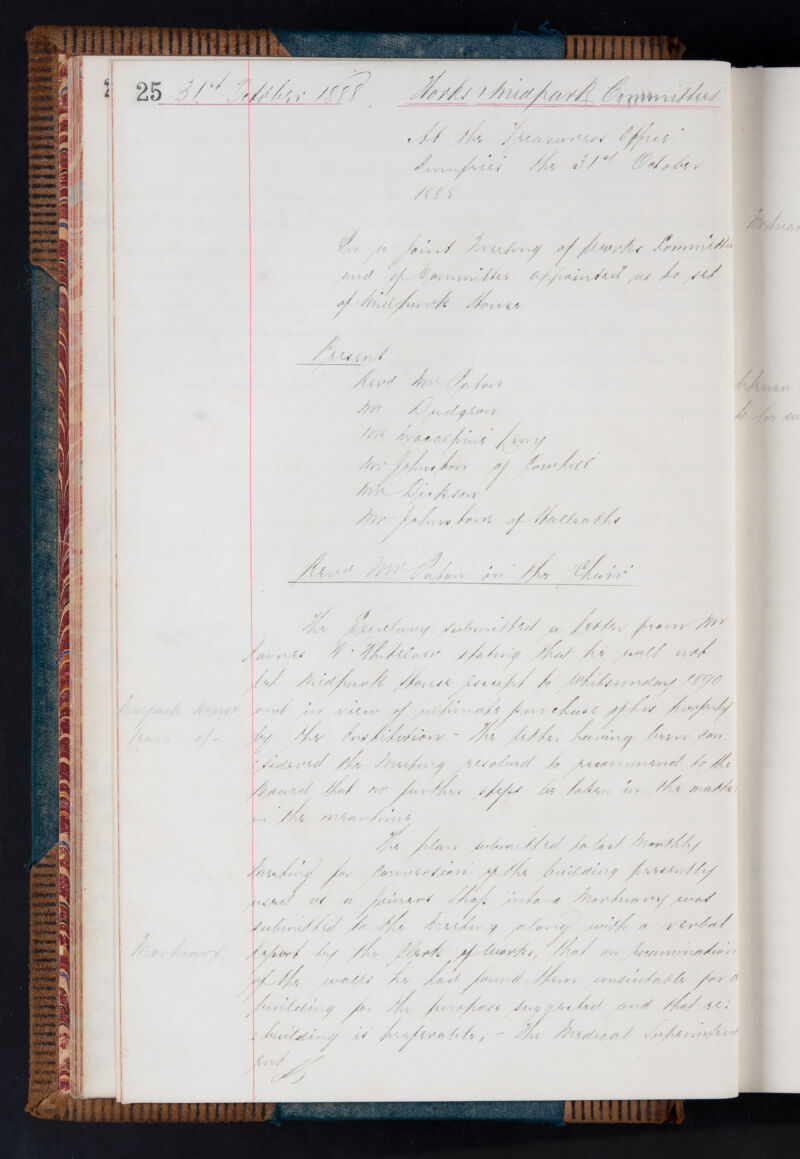 25 31st October 1888. Works & Midpark Committees
At the Treasurers Office
Dumfries the 31st October
1888
In a Joint Meeting of Works Committee
and of Committee appointed as to set
of Midpark House
Present
Revd Mr Paton
Mr Dudgeon
Mr Macalpine Leny
Mr Johnston of Cowhill
Mr Dickson
Mr Johnstone of Halleaths
Revd Mr Paton in the Chair
The Secretary submitted a Letter from Mr
James W. Whitelaw stating that he will not
let Midpark House except to Whitsunday 1890
Midpark House and in view of ultimate purchase of his property
Lease of - by the Institution - The letter having been con:
:sidered the Meeting resolved to recommend to the
Board that no further steps be taken in the matter
in the meantime
The plan submitted to last Monthly
Meeting for conversion of the building presently
used as a Joiners Shop into a Mortuary was
submitted to the Meeting along with a verbal
Mortuary report by the Clerk of Works, that on examination
of the walls he had found them unsuitable for a
building for the purpose suggested and that re:
:building is preferable, - The Medical Superintend
ent
Mortuar